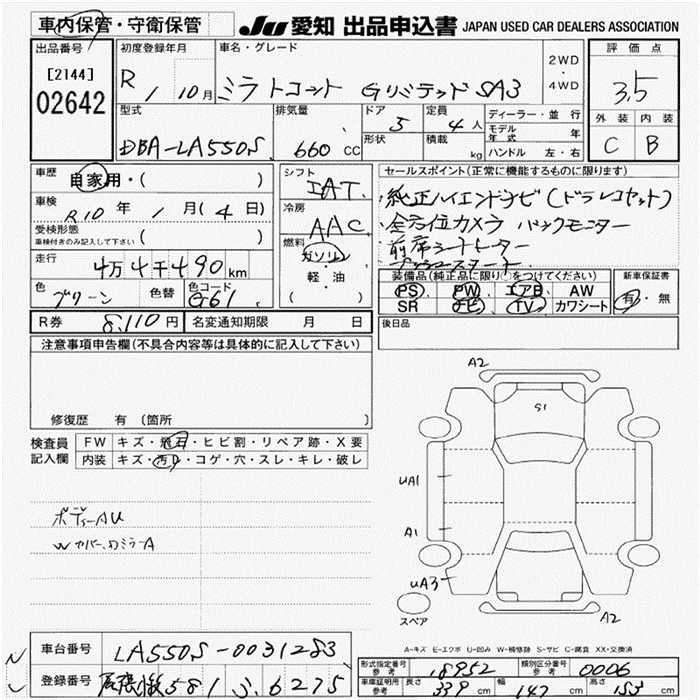 車内保管・守衛保管
JU 愛知 出品申込書 JAPAN USED CAR DEALERS ASSOCIATION
出品番号
[2144]
02642
初度登録年月
R 1 10月
車名・グレード
ミラトコット Gリミテッド SA3
2WD
・
4WD
評価点
3.5
外装 内装
C B
型式
DBA-LA550S
排気量
660 CC
ドア 5
形状
定員 4人
積載 kg
ディーラー・並行
モデル年式 年
ハンドル 左・右
車歴
自家用・( )
車検
R10年 1月(4日)
受検形態
車検付きのみ記入して下さい ( )
走行
4万4千490km
色
グリーン
色替
色コード
G61
シフト
IAT
冷房
AAC
燃料
ガソリン
・
軽・油
( )
セールスポイント(正常に機能するものに限ります)
純正ハイエンドナビ(ドラレコセット)
全方位カメラ バックモニター
前席シートヒーター
装備品(純正品に限り○をつけてください)
PS PW エアB AW
SR ナビ TV カワシート
新車保証書
有・無
R券 8,110円
名変通知期限 月 日
後日品
注意事項申告欄(不具合内容等は具体的に記入して下さい)
修復歴 有(箇所
検査員
記入欄
FW キズ・飛石・ヒビ割・リペア跡・X要
内装 キズ・汚れ・コゲ・穴・スレ・キレ・破レ
ボディーAU
Wカバー、ドアミラーA
A2
S1
UA1
A1
UA3
A2
スペア
A-キズ E-エクボ U-凹み W-補修跡 S-サビ C-腐食 XX-交換済
車台番号 LA550S-0031283
登録番号 581 6275
形式指定番号
参考
18952
類別区分番号
参考
0006
車両証明用
参考
長さ 339 cm
幅 147 cm
高さ 153 cm